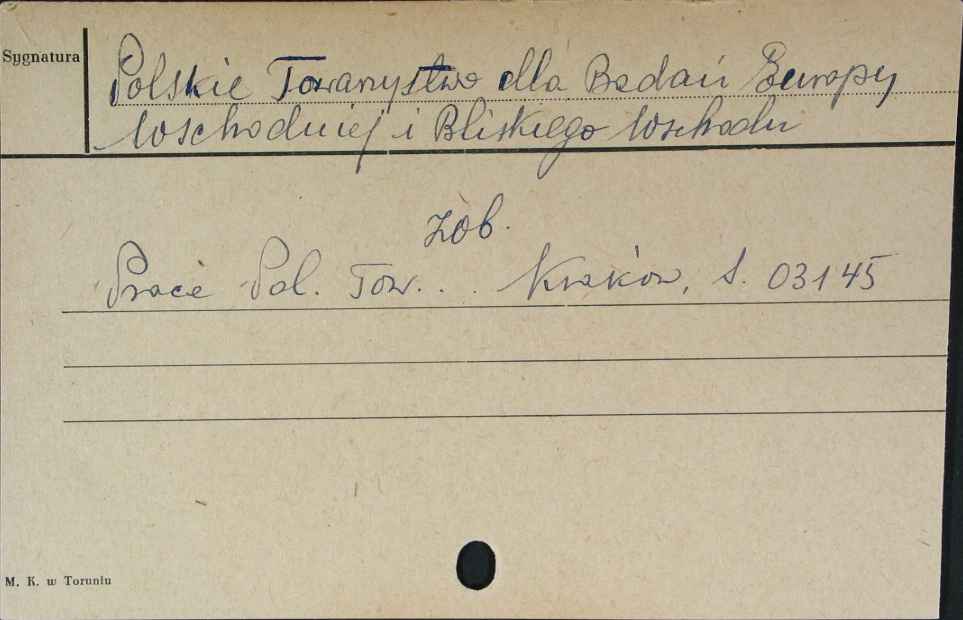 Sygnatura
Polskie Towarzystwo dla Badań Europy
Wschodniej i Bliskiego Wschodu
zob.
Prace Pol. Tow. . . Kraków, S. 03145
M. K. w Toruniu